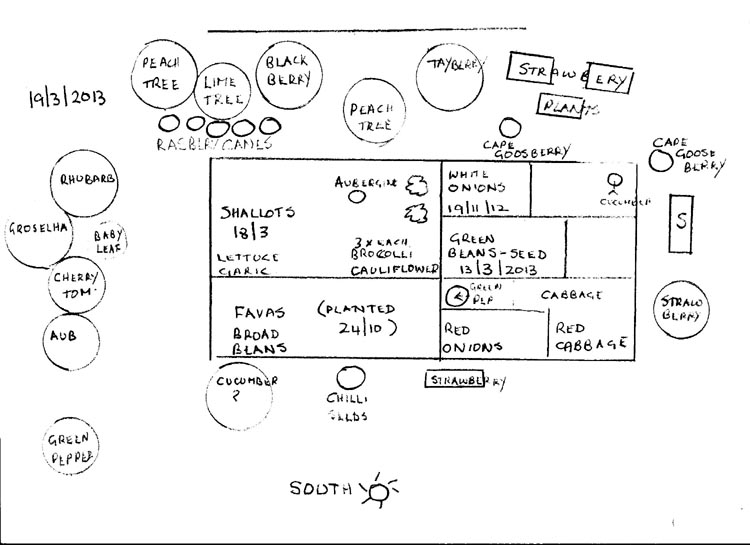 19/3/2013
PEACH
TREE
LIME
TREE
BLACK
BERRY
PEACH
TREE
TAYBERRY
STRAWBERRY
PLANTS
RASBERY CANES
CAPE
GOOSBERRY
CAPE
GOOSE
BERRY
RHUBARB
GROSELHA
BABY
LEAF
CHERRY
TOM.
AUB
GREEN
PEPPER
AUBERGINE
SHALLOTS
18/3
LETTUCE
GARIC
3 x EACH
BROCOLLI
CAULIFLOWER
WHITE
ONIONS
19/11/12
CUCUMBER
GREEN
BEANS-SEED
13/3/2013
S
FAVAS
BROAD
BEANS
(PLANTED
24/10)
GREEN
PEP
CABBAGE
RED
ONIONS
RED
CABBAGE
STRAW
BERRY
CUCUMBER
?
CHILLI
SEEDS
STRAWBERRY
SOUTH